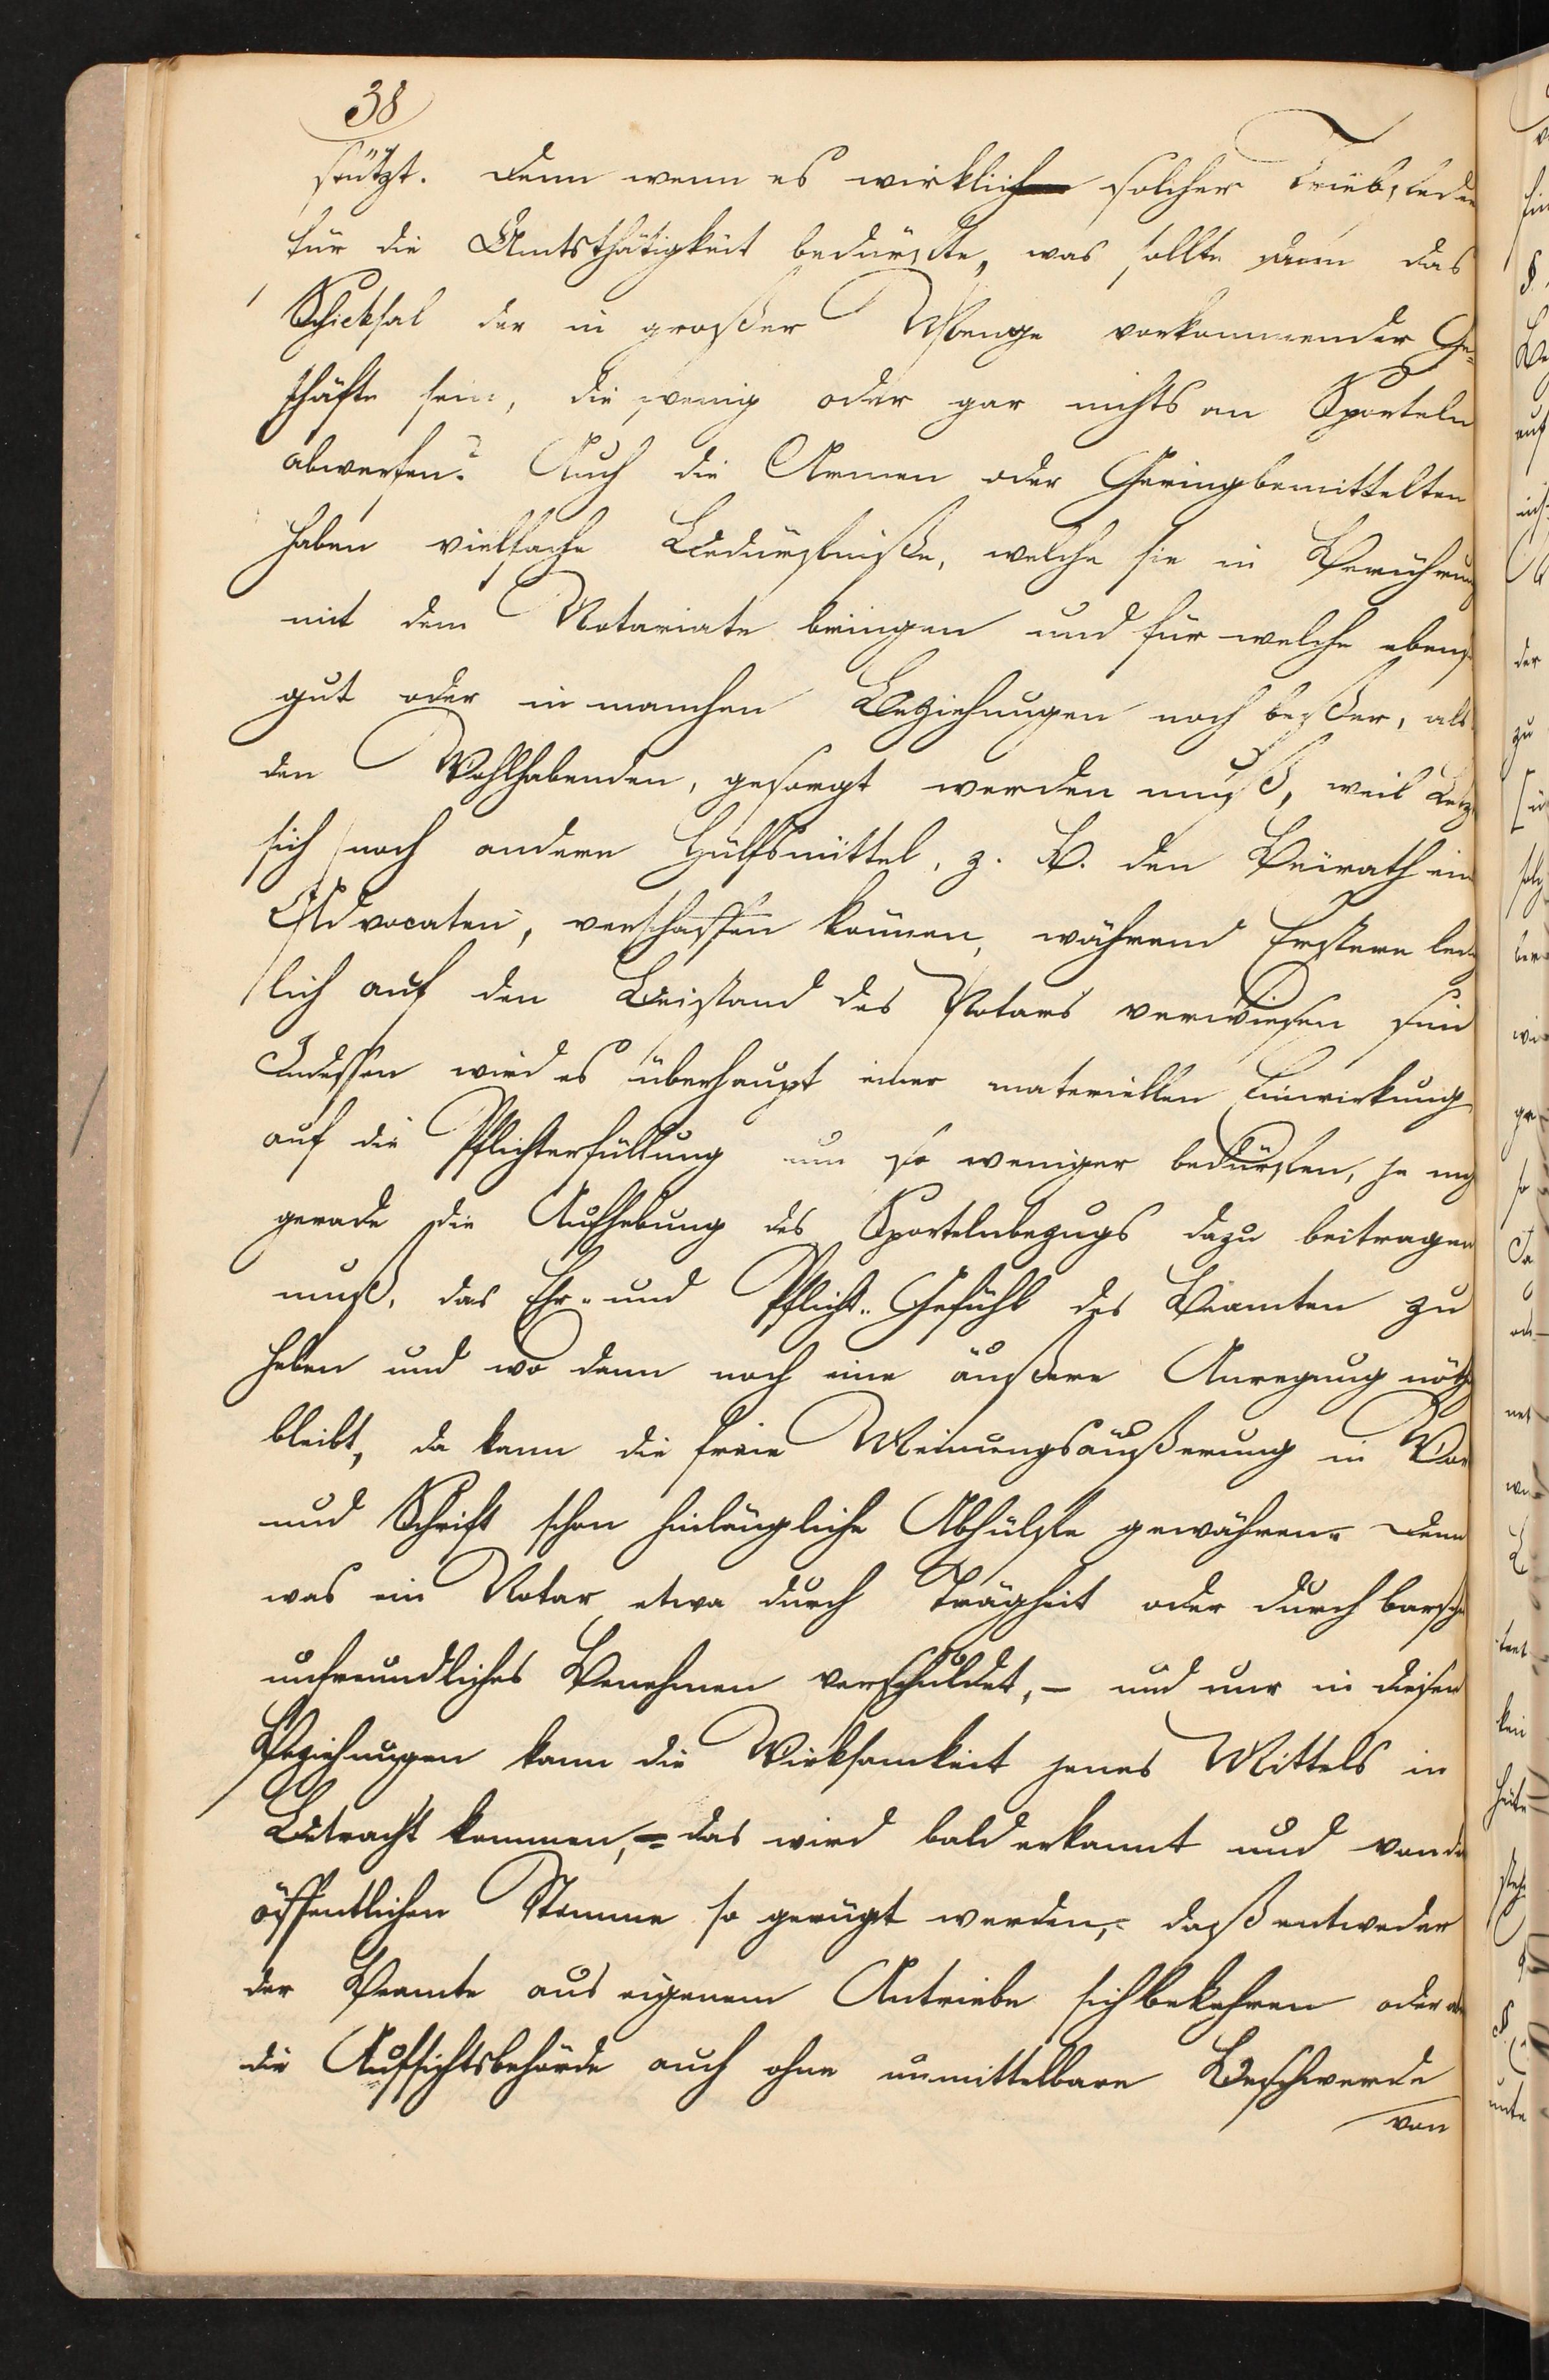 38
stützt. Denn wenn es wirklich solcher Triebfeder
für die Amtsthätigkeit bedürfte, was sollte dann das
Schicksal der in großer Menge vorkommender Ge-
schäfte sein, die wenig oder gar nichts an Sporteln
abwerfen? Auch die Armen oder Geringbemittelten
haben vielfache Bedürfniße, welche sie in Berührung
mit dem Notariate bringen und für welche ebenso
gut oder in manchen Beziehungen noch beßer, als
den Wohlhabenden, gesorgt werden muß, weil Letz
sich noch andere Hülfsmittel, z. B. den Beirath ein
Advocaten, verschaffen können, während Erstere led
lich auf den Beistand des Notars verwiesen sind
Indessen wird es überhaupt einer materiellen Einwirkung
auf die Pflichterfüllung um so weniger bedürfen, je
gerade die Aufhebung des Sportelnbezugs dazu beitragen
muß, das Ehr- und Pflicht-Gefühl des Beamten zu
heben und wo dann noch eine äußere Anregung nöth
bleibt, da kann die freie Meinungsäußerung in Wor
und Schrift schon hinlängliche Abhülfe gewähren. Denn
was ein Notar etwa durch Trägheit oder durch barsche
unfreundliches Benehmen verschuldet, – und nur in diesen
Beziehungen kann die Wirksamkeit jenes Mittels in
Betracht kommen, – das wird bald erkannt und von der
öffentlichen Stimme so gerügt werden, daß entweder
der Beamte aus eigenem Antriebe sich bekehren oder
die Aufsichtsbehörde auch ohne unmittelbare Beschwerde
von